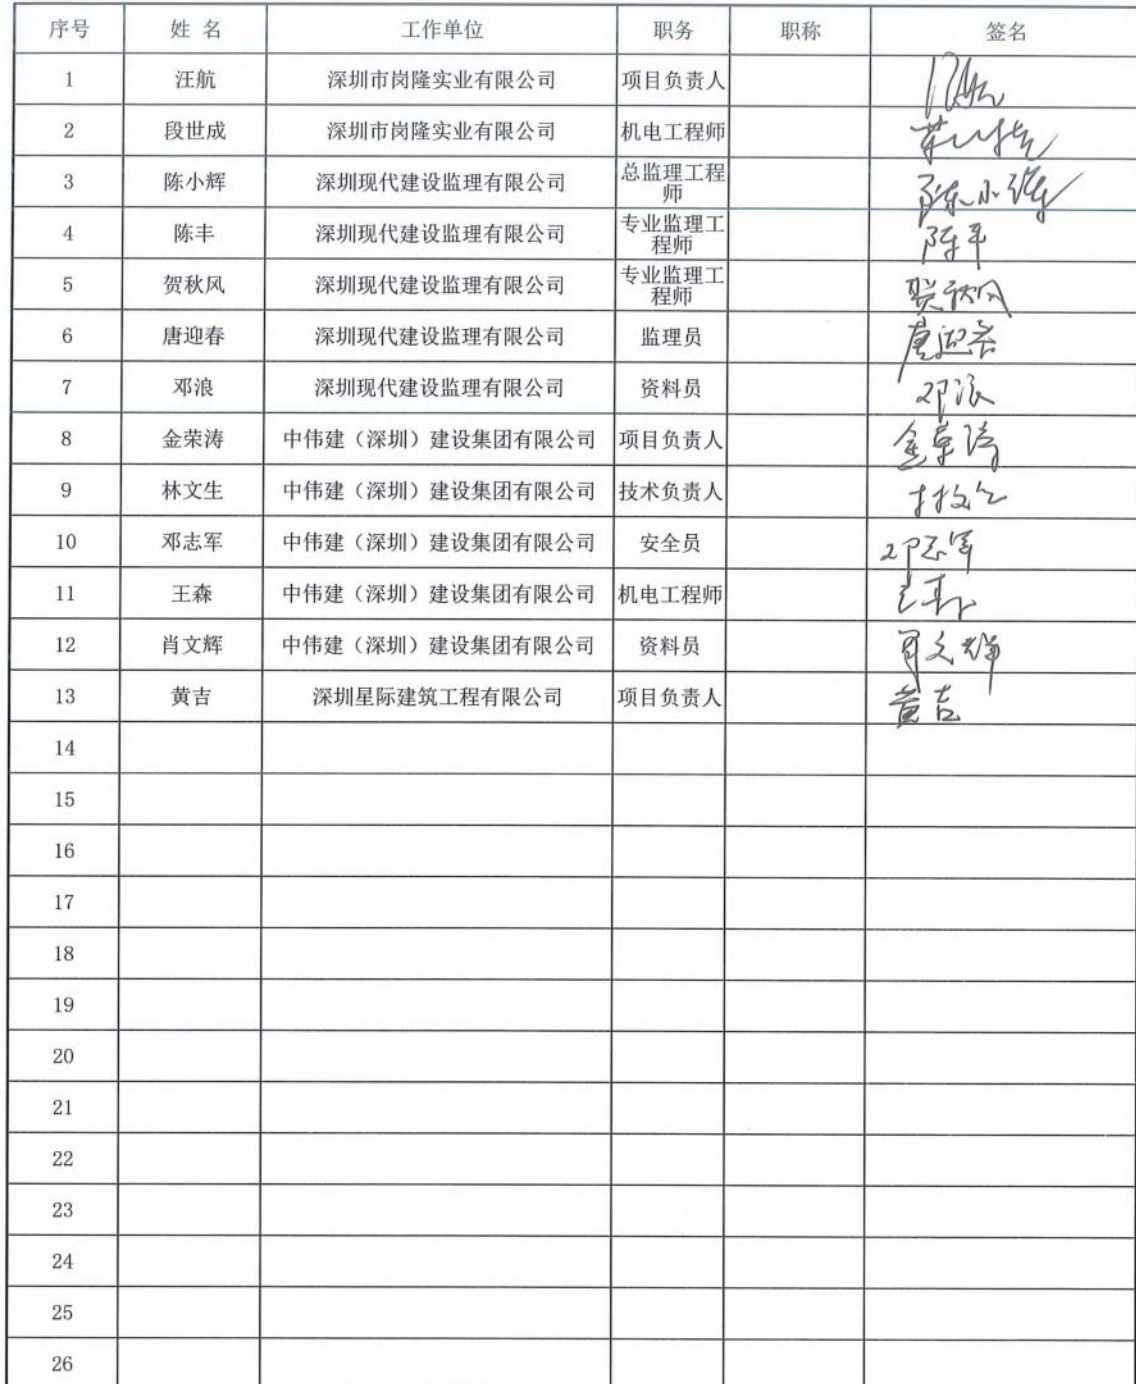 序号 姓 名 工作单位 职务 职称 签名
1 汪航 深圳市岗隆实业有限公司 项目负责人
2 段世成 深圳市岗隆实业有限公司 机电工程师
3 陈小辉 深圳现代建设监理有限公司 总监理工程师 陈小辉
4 陈丰 深圳现代建设监理有限公司 专业监理工程师 陈丰
5 贺秋风 深圳现代建设监理有限公司 专业监理工程师 贺秋风
6 唐迎春 深圳现代建设监理有限公司 监理员 唐迎春
7 邓浪 深圳现代建设监理有限公司 资料员 邓浪
8 金荣涛 中伟建（深圳）建设集团有限公司 项目负责人 金荣涛
9 林文生 中伟建（深圳）建设集团有限公司 技术负责人 林文生
10 邓志军 中伟建（深圳）建设集团有限公司 安全员 邓志军
11 王森 中伟建（深圳）建设集团有限公司 机电工程师
12 肖文辉 中伟建（深圳）建设集团有限公司 资料员 肖文辉
13 黄吉 深圳星际建筑工程有限公司 项目负责人 黄吉
14
15
16
17
18
19
20
21
22
23
24
25
26